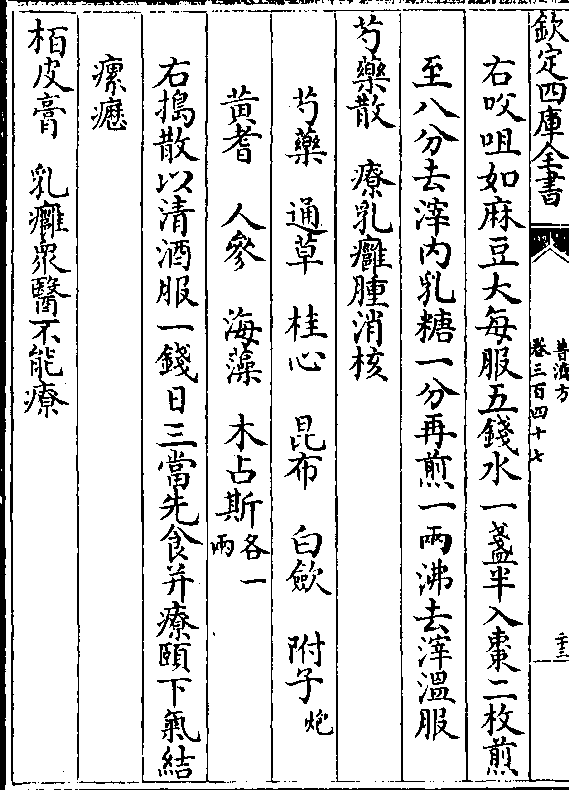 欽定四庫全書
普濟方
卷三百四十七
右㕮咀如麻豆大每服五錢水一盞半入棗二枚煎
至八分去滓内乳糖一分再煎一兩沸去滓溫服
芍藥散　療乳癰腫消核
芍藥　通草　桂心　昆布　白歛　附子炮
黃耆　人參　海藻　木占斯各一兩
右搗散以清酒服一錢日三當先食并療頤下氣結
瘰癧
栢皮膏　乳癰衆醫不能療